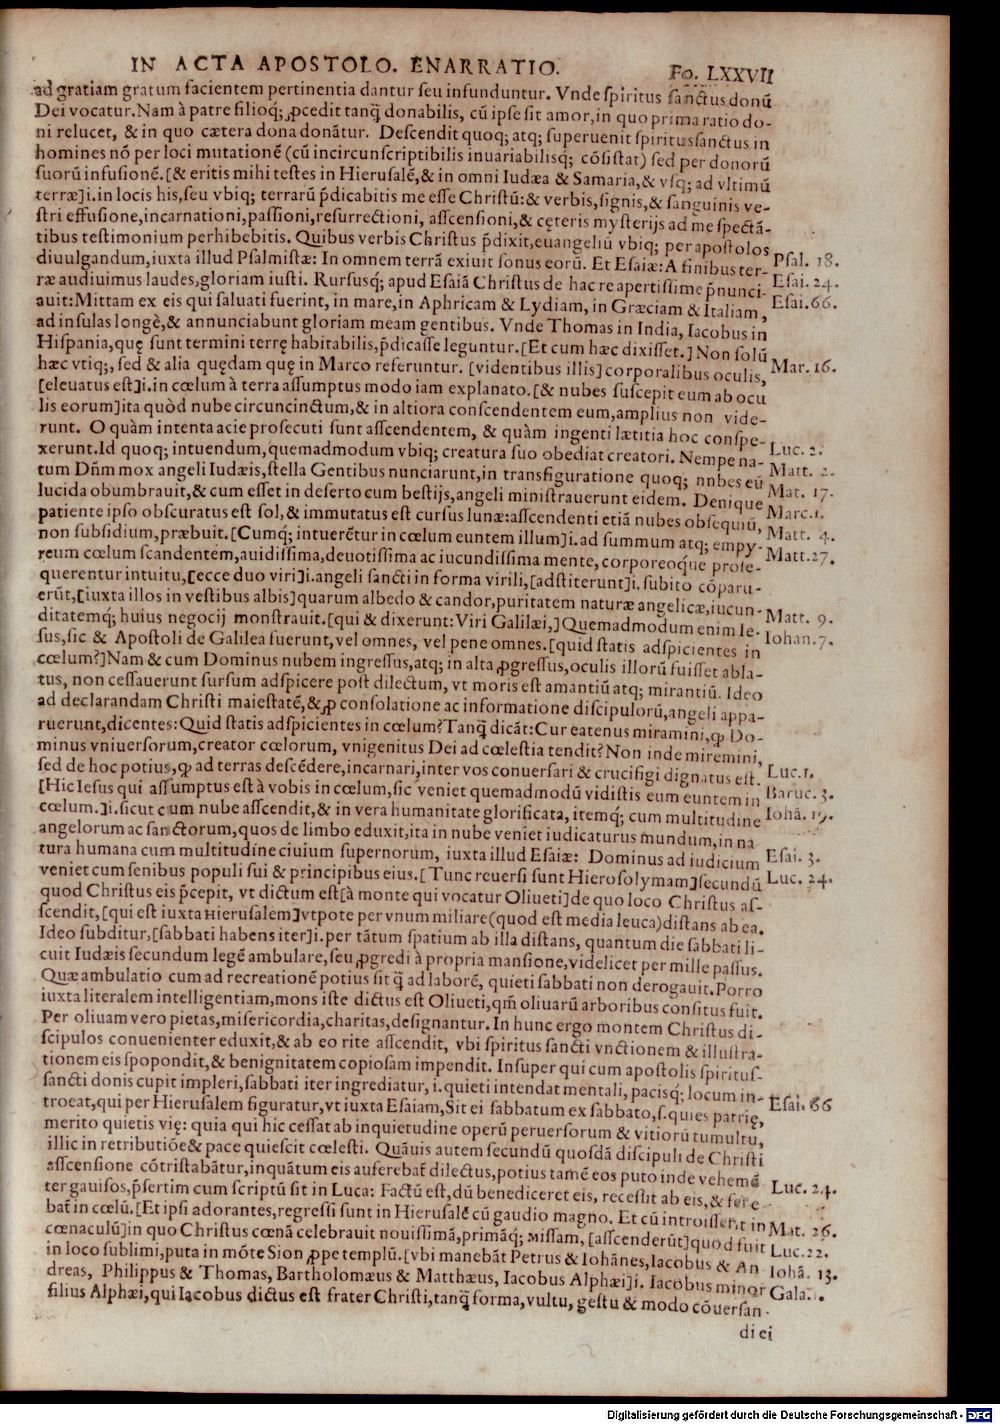 IN ACTA APOSTOLO. ENARRATIO. Fo. LXXVII
ad gratiam gratum facientem pertinentia dantur seu infunduntur. Vnde spiritus sanctus donū
Dei vocatur. Nam à patre filioq; ꝓcedit tanq̃ donabilis, cū ipse sit amor, in quo prima ratio do-
ni relucet, & in quo cætera dona donātur. Descendit quoq; atq; superuenit spiritussanctus in
homines nō per loci mutationē (cū incircunscriptibilis inuariabilisq; cōsistat) sed per donorū
suorū infusionē. [& eritis mihi testes in Hierusalē, & in omni Iudæa & Samaria, & vsq; ad vltimū
terræ] .i. in locis his, seu vbiq; terrarū p̄dicabitis me esse Christū: & verbis, signis, & sanguinis ve-
stri effusione, incarnationi, passioni, resurrectioni, asscensioni, & cęteris mysterijs ad me spectā-
tibus testimonium perhibebitis. Quibus verbis Christus p̄dixit, euangeliū vbiq; per apostolos
diuulgandum, iuxta illud Psalmistæ: In omnem terrā exiuit sonus eorū. Et Esaiæ: A finibus ter- Psal. 18.
ræ audiuimus laudes, gloriam iusti. Rursusq; apud Esaiā Christus de hac re apertissime p̄nunci- Esai. 24.
auit: Mittam ex eis qui saluati fuerint, in mare, in Aphricam & Lydiam, in Græciam & Italiam, Esai. 66.
ad insulas longè, & annunciabunt gloriam meam gentibus. Vnde Thomas in India, Iacobus in
Hispania, quę sunt termini terrę habitabilis, p̄dicasse leguntur. [Et cum hæc dixisset.] Non solū
hæc vtiq;, sed & alia quędam quę in Marco referuntur. [videntibus illis] corporalibus oculis, Mar. 16.
[eleuatus est] .i. in cœlum à terra assumptus modo iam explanato. [& nubes suscepit eum ab ocu
lis eorum] ita quòd nube circuncinctum, & in altiora conscendentem eum, amplius non vide-
runt. O quàm intenta acie prosecuti sunt asscendentem, & quàm ingenti lætitia hoc conspe-
xerunt. Id quoq; intuendum, quemadmodum vbiq; creatura suo obediat creatori. Nempe na- Luc. 2.
tum Dñm mox angeli Iudæis, stella Gentibus nunciarunt, in transfiguratione quoq; nnbes eū Matt. 2.
lucida obumbrauit, & cum esset in deserto cum bestijs, angeli ministrauerunt eidem. Denique Mat. 17.
patiente ipso obscuratus est sol, & immutatus est cursus lunæ: asscendenti etiā nubes obsequiū, Marc. 1.
non subsidium, præbuit. [Cumq; intuerētur in cœlum euntem illum] .i. ad summum atq; empy- Matt. 4.
reum cœlum scandentem, auidissima, deuotissima ac iucundissima mente, corporeoque prose- Matt. 27.
querentur intuitu, [ecce duo viri] .i. angeli sancti in forma virili, [adstiterunt] .i. subito cōparu-
erūt, [iuxta illos in vestibus albis] quarum albedo & candor, puritatem naturæ angelicæ, iucun-
ditatemq; huius negocij monstrauit. [qui & dixerunt: Viri Galilæi,] Quemadmodum enim Ie- Matt. 9.
sus, sic & Apostoli de Galilea fuerunt, vel omnes, vel pene omnes. [quid statis adspicientes in Iohan. 7.
cœlum?] Nam & cum Dominus nubem ingressus, atq; in alta ꝓgressus, oculis illorū fuisset abla-
tus, non cessauerunt sursum adspicere post dilectum, vt moris est amantiū atq; mirantiū. Ideo
ad declarandam Christi maiestatē, & ꝓ consolatione ac informatione discipulorū, angeli appa-
ruerunt, dicentes: Quid statis adspicientes in cœlum? Tanq̃ dicāt: Cur eatenus miramini, ꝙ Do-
minus vniuersorum, creator cœlorum, vnigenitus Dei ad cœlestia tendit? Non inde miremini,
sed de hoc potius, ꝙ ad terras descēdere, incarnari, inter vos conuersari & crucifigi dignatus est. Luc. 1.
[Hic Iesus qui assumptus est à vobis in cœlum, sic veniet quemadmodū vidistis eum euntem in Baruc. 3.
cœlum.] .i. sicut cum nube asscendit, & in vera humanitate glorificata, itemq; cum multitudine Iohā. 19.
angelorum ac sanctorum, quos de limbo eduxit, ita in nube veniet iudicaturus mundum, in na
tura humana cum multitudine ciuium supernorum, iuxta illud Esaiæ: Dominus ad iudicium Esai. 3.
veniet cum senibus populi sui & principibus eius. [Tunc reuersi sunt Hierosolymam] secundū Luc. 24.
quod Christus eis p̄cepit, vt dictum est [à monte qui vocatur Oliueti] de quo loco Christus as-
scendit, [qui est iuxta Hierusalem] vtpote per vnum miliare (quod est media leuca) distans ab ea.
Ideo subditur, [sabbati habens iter] .i. per tātum spatium ab illa distans, quantum die sabbati li-
cuit Iudæis secundum legē ambulare, seu ꝓgredi à propria mansione, videlicet per mille passus.
Quæ ambulatio cum ad recreationē potius sit q̃ ad laborē, quieti sabbati non derogauit. Porro
iuxta literalem intelligentiam, mons iste dictus est Oliueti, qm̄ oliuarū arboribus consitus fuit.
Per oliuam vero pietas, misericordia, charitas, designantur. In hunc ergo montem Christus di-
scipulos conuenienter eduxit, & ab eo rite asscendit, vbi spiritus sancti vnctionem & illustra-
tionem eis spopondit, & benignitatem copiosam impendit. Insuper qui cum apostolis spiritus-
sancti donis cupit impleri, sabbati iter ingrediatur, i. quieti intendat mentali, pacisq; locum in-
troeat, qui per Hierusalem figuratur, vt iuxta Esaiam, Sit ei sabbatum ex sabbato, s. quies patrię, Esai. 66
merito quietis vię: quia qui hic cessat ab inquietudine operū peruersorum & vitiorū tumultu,
illic in retributiōe & pace quiescit cœlesti. Quāuis autem secundū quosdā discipuli de Christi
asscensione cōtristabātur, inquātum eis auferebat̃ dilectus, potius tamē eos puto inde vehemē
ter gauisos, p̄sertim cum scriptū sit in Luca: Factū est, dū benediceret eis, recessit ab eis, & fere- Luc. 24.
bat̃ in cœlū. [Et ipsi adorantes, regressi sunt in Hierusalē cū gaudio magno. Et cū introissent in
cœnaculū] in quo Christus cœnā celebrauit nouissimā, primāq; Missam, [asscenderūt] quod fuit Mat. 26.
in loco sublimi, puta in mōte Sion ꝓpe templū. [vbi manebāt Petrus & Iohānes, Iacobus & An Luc. 22.
dreas, Philippus & Thomas, Bartholomæus & Matthæus, Iacobus Alphæi] .i. Iacobus minor Iohā. 13.
filius Alphæi, qui Iacobus dictus est frater Christi, tanq̃ forma, vultu, gestu & modo cōuersan- Gala.
di ei
Digitalisierung gefördert durch die Deutsche Forschungsgemeinschaft - DFG